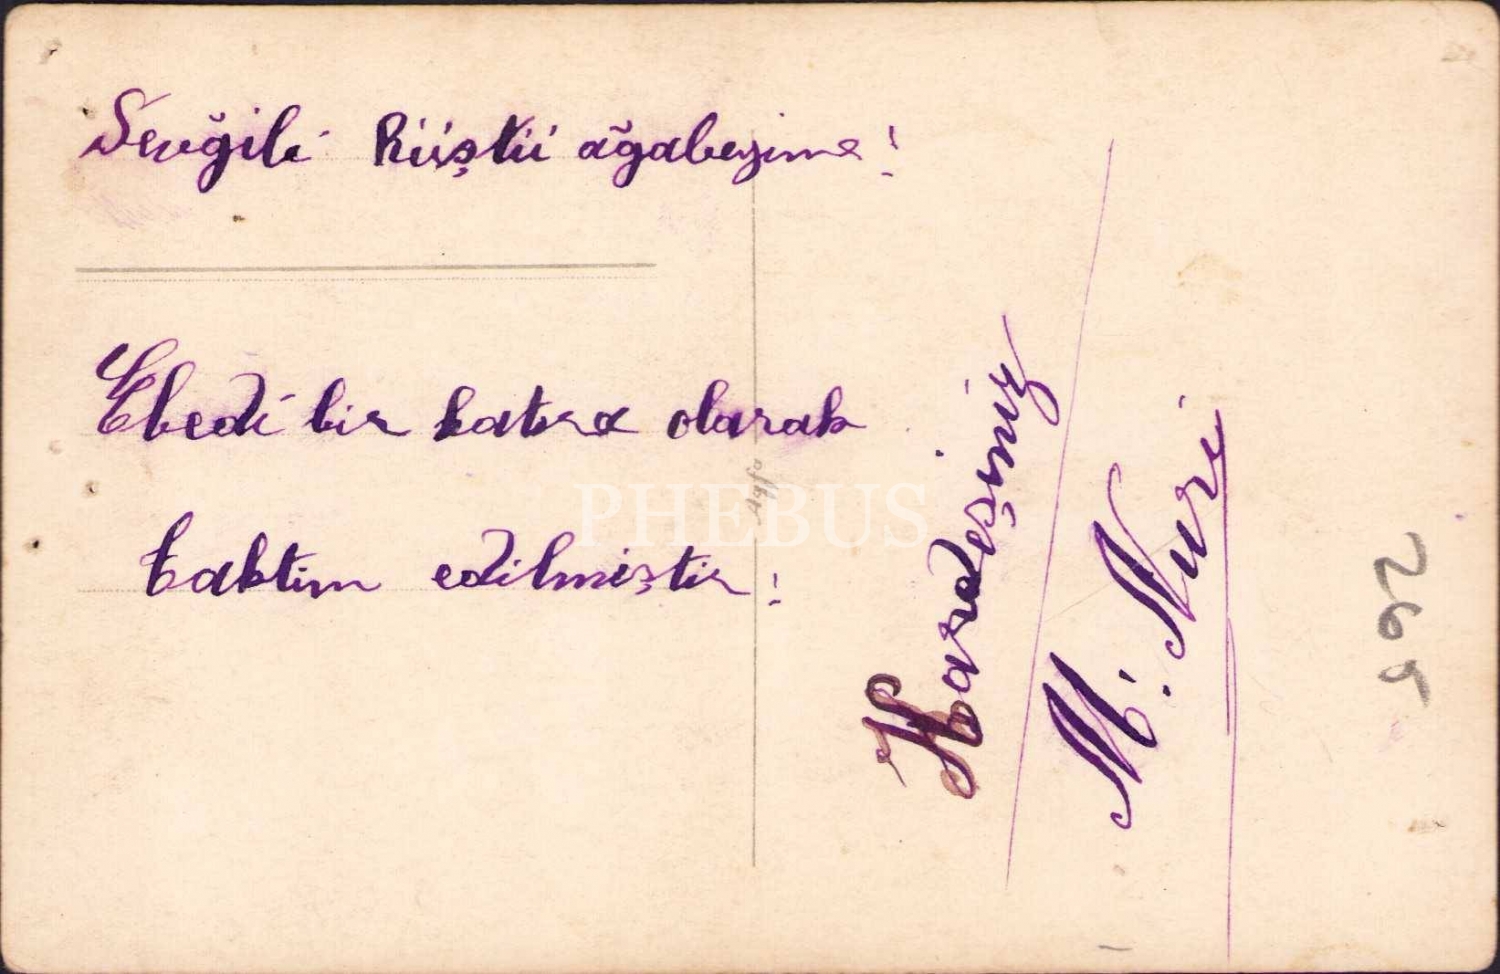 Sevğili Rüştü ağabeyime!
Ebedi bir hatıra olarak
taktim edilmiştir!
Kardeşiniz
M. Nuri
Agfa
265
PHEBUS